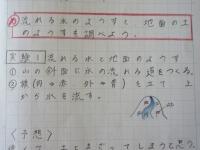 め 流れる水のようすと、地面の土
のようすを調べよう。
実験1 流れる水と地面のようす
①山の斜面に水の流れる道をつくる。
②旗(内→赤 外→青)を立て、上
から水を流す。
<予想>